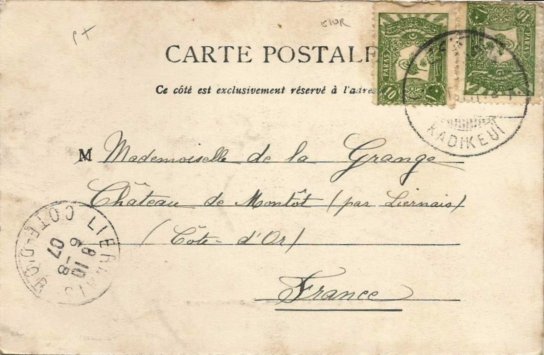 CARTE POSTALE
Ce côté est exclusivement réservé à l'adres
PARAS
10
10
KADIKEUI
M Mademoiselle de la Grange
Château de Montôt (par Liernais)
(Côte-d'Or)
France
LIERNAIS
8 10
6-8
07
COTE-D'OR